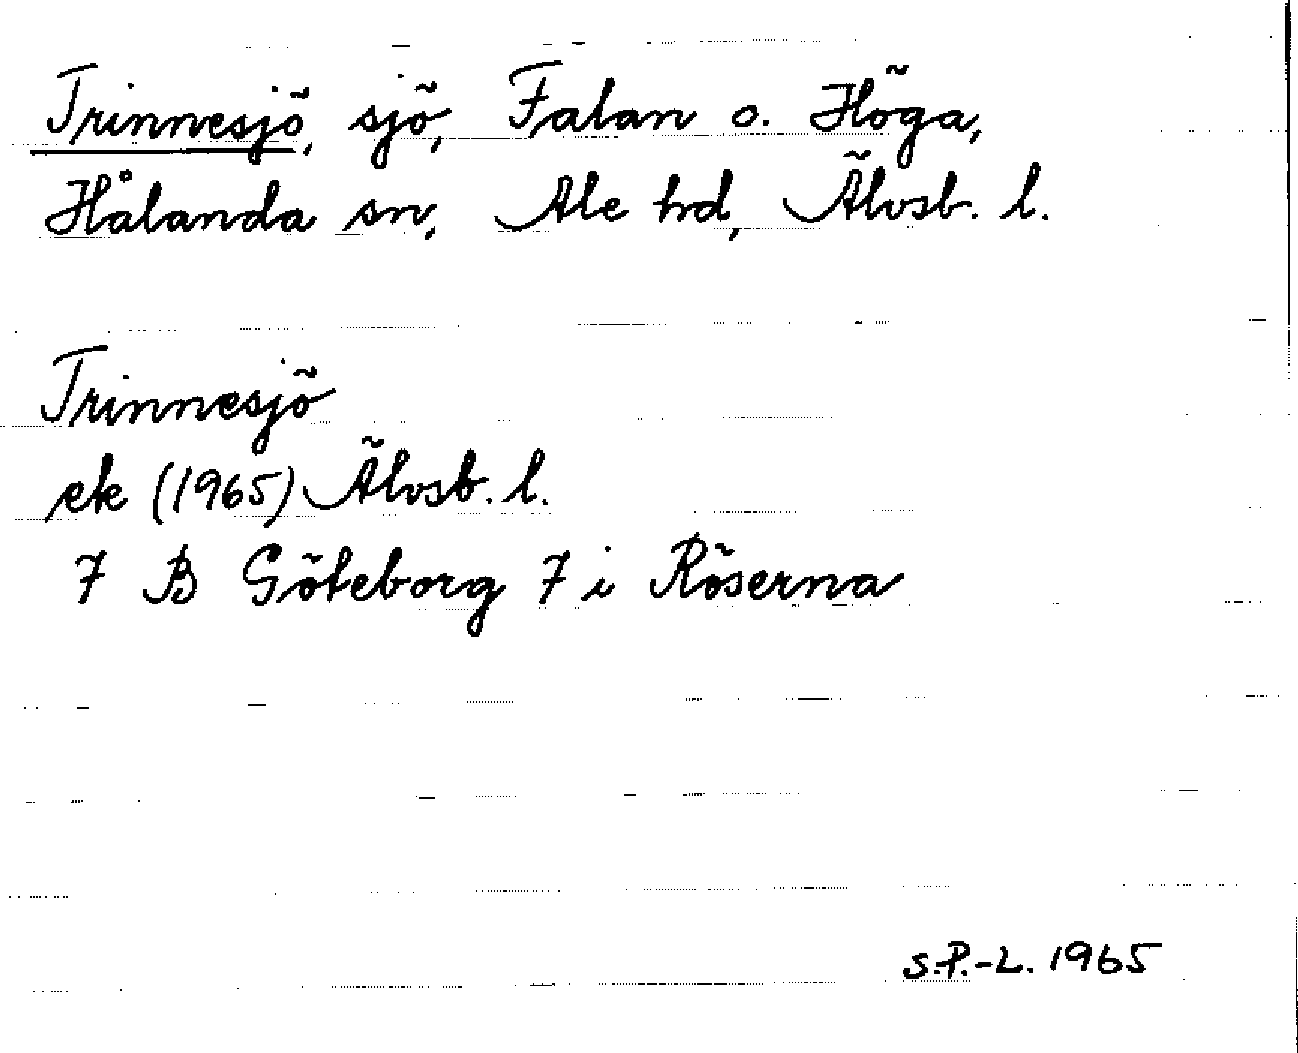 Trinnesjö, sjö, Falan o. Höga,
Hålanda sn, Ale hd, Älvsb. l.
Trinnesjö
ek (1965) Älvsb. l.
7 B Göteborg 7 i Röserna
S.P.-L. 1965